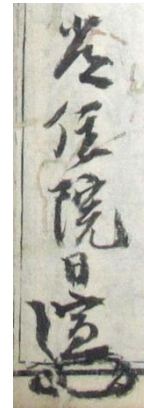 常住院日